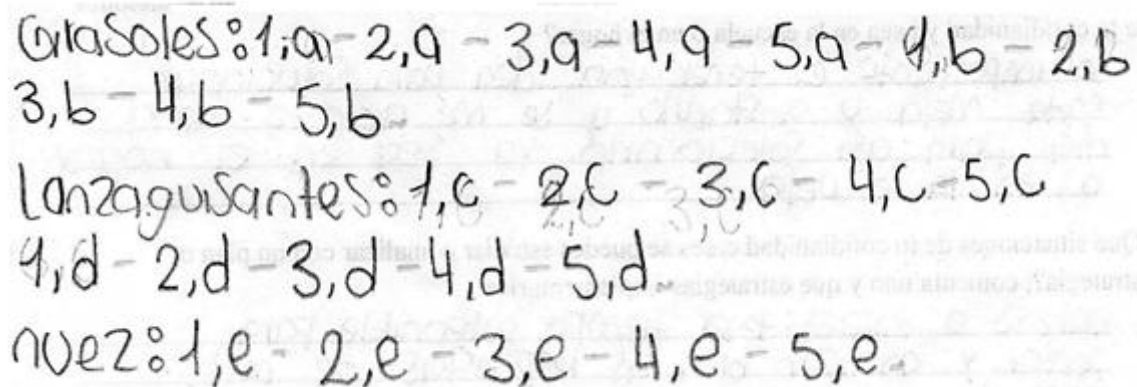 Girasoles: 1,a - 2,a - 3,a - 4,a - 5,a - 1,b - 2,b
3,b - 4,b - 5,b
Lanzaguisantes: 1,c - 2,c - 3,c - 4,c - 5,c
1,d - 2,d - 3,d - 4,d - 5,d
nuez: 1,e - 2,e - 3,e - 4,e - 5,e